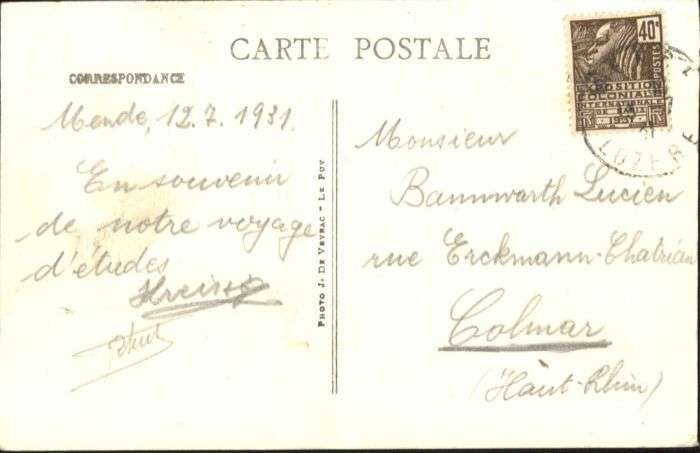 CARTE POSTALE
CORRESPONDANCE
Mende, 12.7.1931.
En souvenir
de notre voyage
d'études
PHOTO J. DE VEYRAC - LE PUY
40c
POSTES
EXPOSITION
COLONIALE
INTERNATIONALE
PARIS
1931
LOZERE
Monsieur
Bannwarth Lucien
rue Erckmann-Chatrian
Colmar
(Haut-Rhin)